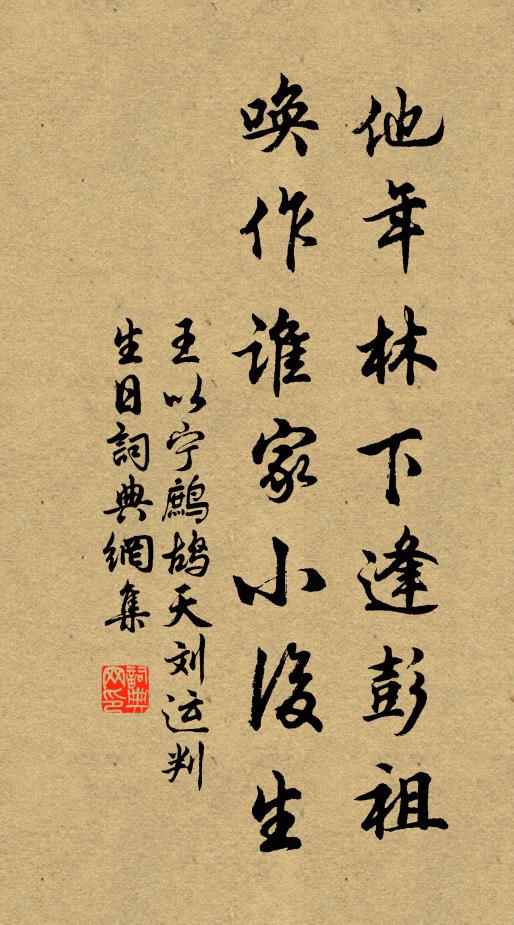 他年林下逢彭祖
唤作谁家小后生
王以宁鹧鸪天刘运判
生日詞典網集
詞典网印